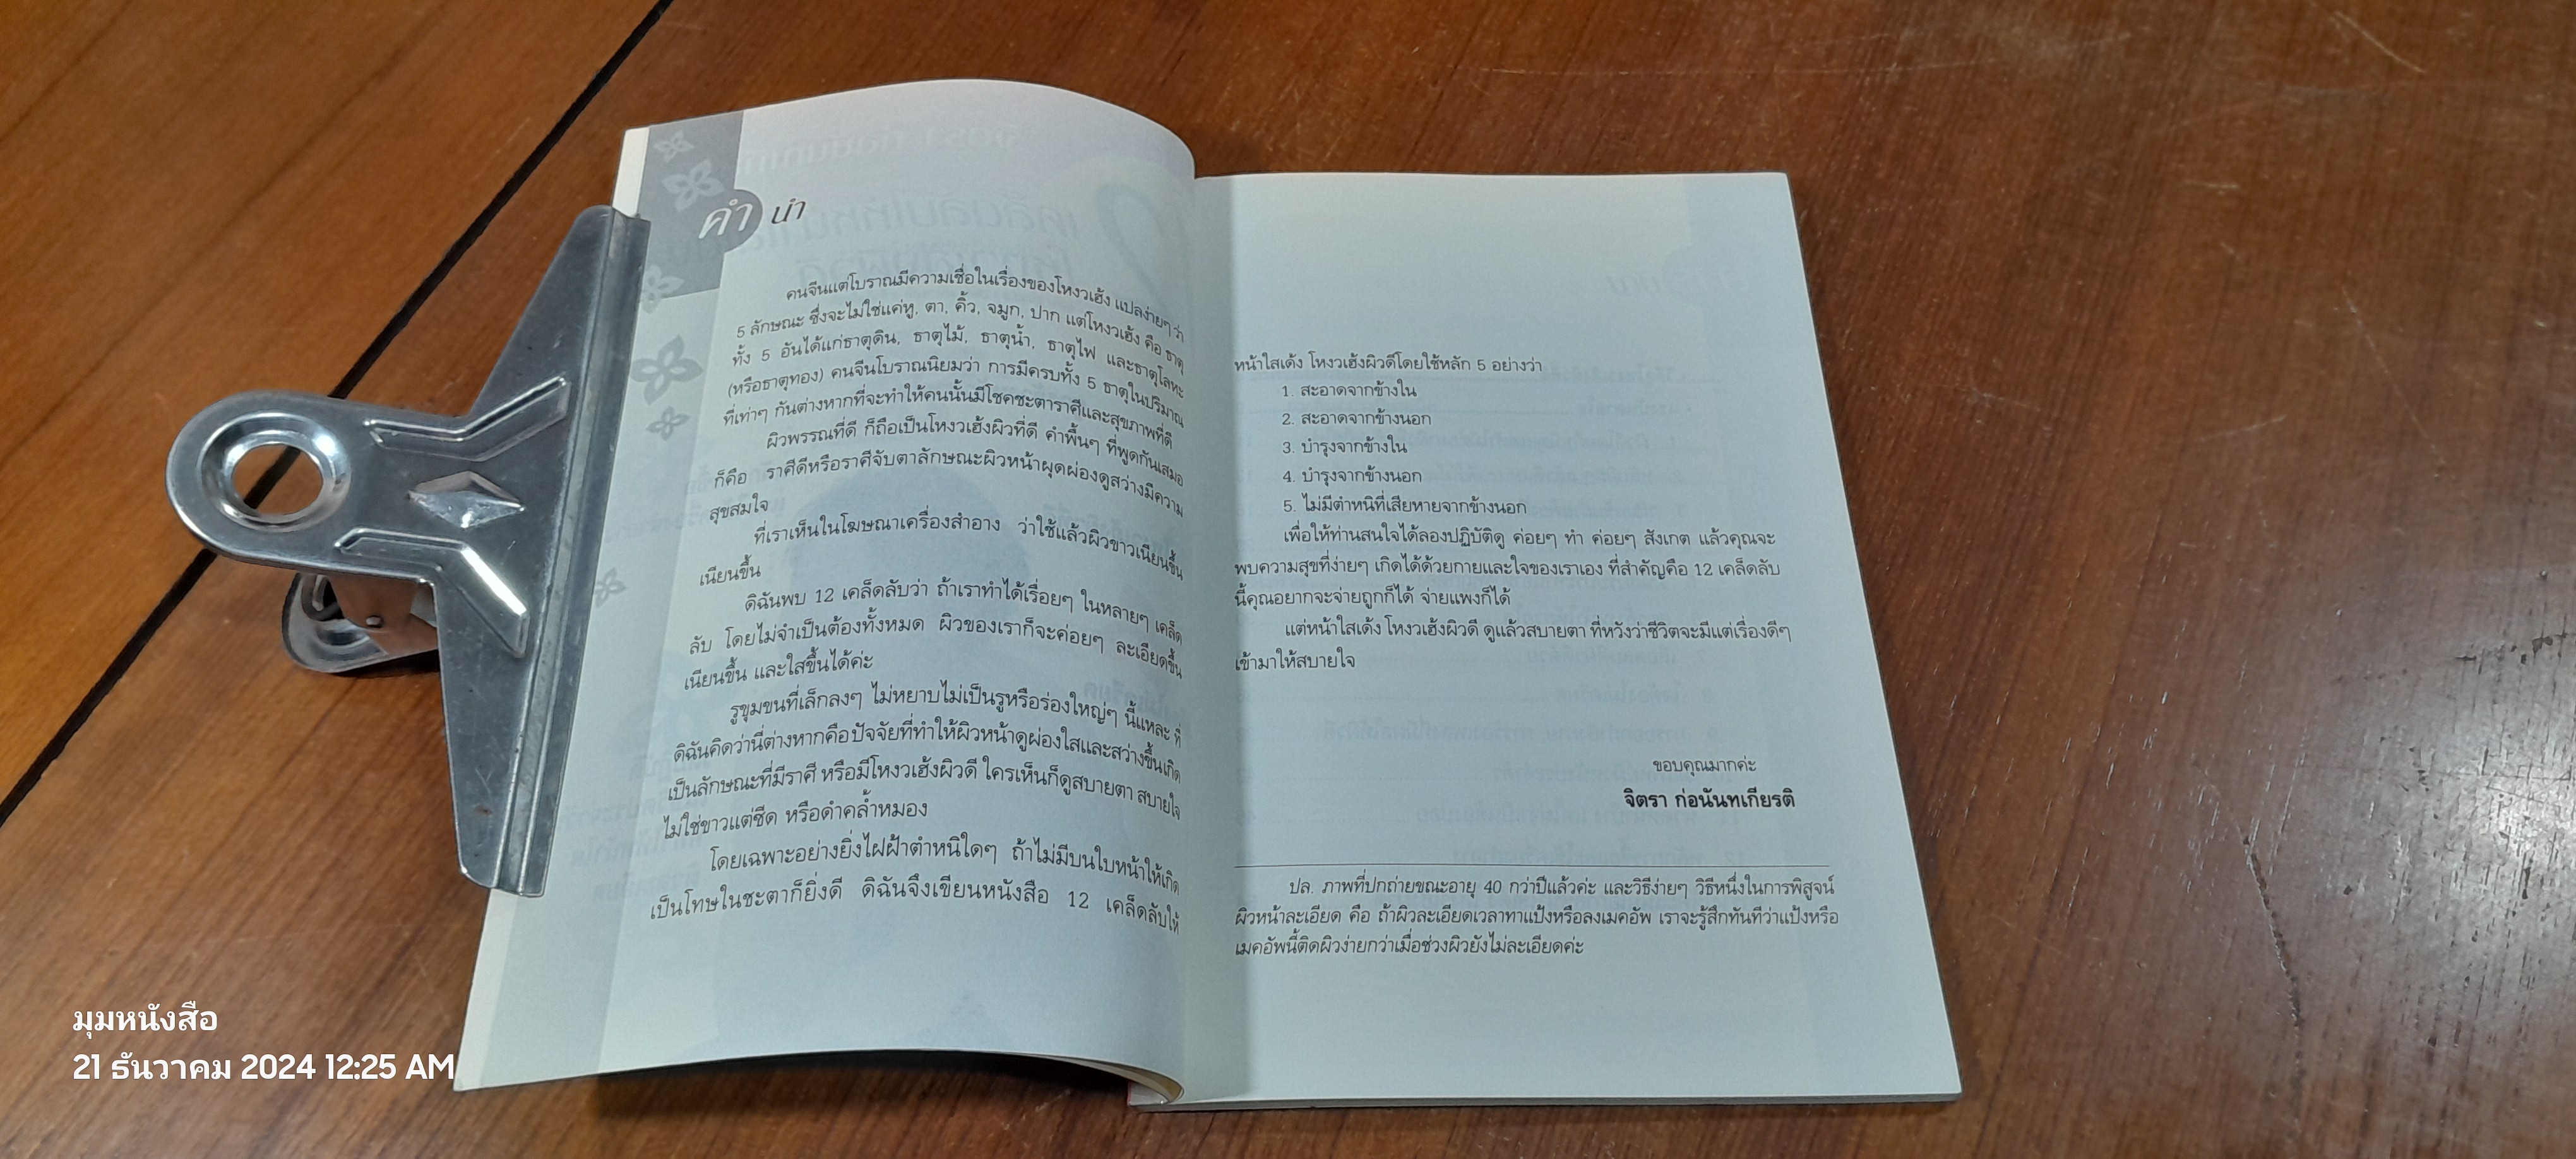 คำ นำ
คนจีนแต่โบราณมีความเชื่อในเรื่องของโหงวเฮ้ง แปลง่ายๆ ว่า
5 ลักษณะ ซึ่งจะไม่ใช่แค่หู, ตา, คิ้ว, จมูก, ปาก แต่โหงวเฮ้ง คือ ธาตุ
ทั้ง 5 อันได้แก่ธาตุดิน, ธาตุไม้, ธาตุน้ำ, ธาตุไฟ และธาตุโลหะ
(หรือธาตุทอง) คนจีนโบราณนิยมว่า การมีครบทั้ง 5 ธาตุในปริมาณ
ที่เท่าๆ กันต่างหากที่จะทำให้คนนั้นมีโชคชะตาราศีและสุขภาพที่ดี
ผิวพรรณที่ดี ก็ถือเป็นโหงวเฮ้งผิวที่ดี คำพื้นๆ ที่พูดกันเสมอ
ก็คือ ราศีดีหรือราศีจับตาลักษณะผิวหน้าผุดผ่องดูสว่างมีความ
สุขสมใจ
ที่เราเห็นในโฆษณาเครื่องสำอาง ว่าใช้แล้วผิวขาวเนียนขึ้น
เนียนขึ้น
ดิฉันพบ 12 เคล็ดลับว่า ถ้าเราทำได้เรื่อยๆ ในหลายๆ เคล็ด
ลับ โดยไม่จำเป็นต้องทั้งหมด ผิวของเราก็จะค่อยๆ ละเอียดขึ้น
เนียนขึ้น และใสขึ้นได้ค่ะ
รูขุมขนที่เล็กลงๆ ไม่หยาบไม่เป็นรูหรือร่องใหญ่ๆ นี้แหละ ที่
ดิฉันคิดว่านี่ต่างหากคือปัจจัยที่ทำให้ผิวหน้าดูผ่องใสและสว่างขึ้นเกิด
เป็นลักษณะที่มีราศี หรือมีโหงวเฮ้งผิวดี ใครเห็นก็ดูสบายตา สบายใจ
ไม่ใช่ขาวแต่ซีด หรือดำคล้ำหมอง
โดยเฉพาะอย่างยิ่งไฝฝ้าตำหนิใดๆ ถ้าไม่มีบนใบหน้าให้เกิด
เป็นโทษในชะตาก็ยิ่งดี ดิฉันจึงเขียนหนังสือ 12 เคล็ดลับให้
หน้าใสเด้ง โหงวเฮ้งผิวดีโดยใช้หลัก 5 อย่างว่า
1. สะอาดจากข้างใน
2. สะอาดจากข้างนอก
3. บำรุงจากข้างใน
4. บำรุงจากข้างนอก
5. ไม่มีตำหนิที่เสียหายจากข้างนอก
เพื่อให้ท่านสนใจได้ลองปฏิบัติดู ค่อยๆ ทำ ค่อยๆ สังเกต แล้วคุณจะ
พบความสุขที่ง่ายๆ เกิดได้ด้วยกายและใจของเราเอง ที่สำคัญคือ 12 เคล็ดลับ
นี้คุณอยากจะจ่ายถูกก็ได้ จ่ายแพงก็ได้
แต่หน้าใสเด้ง โหงวเฮ้งผิวดี ดูแล้วสบายตา ที่หวังว่าชีวิตจะมีแต่เรื่องดีๆ
เข้ามาให้สบายใจ
ขอบคุณมากค่ะ
จิตรา ก่อนันทเกียรติ
ปล. ภาพที่ปกถ่ายขณะอายุ 40 กว่าปีแล้วค่ะ และวิธีง่ายๆ วิธีหนึ่งในการพิสูจน์
ผิวหน้าละเอียด คือ ถ้าผิวละเอียดเวลาทาแป้งหรือลงเมคอัพ เราจะรู้สึกทันทีว่าแป้งหรือ
เมคอัพนี้ติดผิวง่ายกว่าเมื่อช่วงผิวยังไม่ละเอียดค่ะ
มุมหนังสือ
21 ธันวาคม 2024 12:25 AM